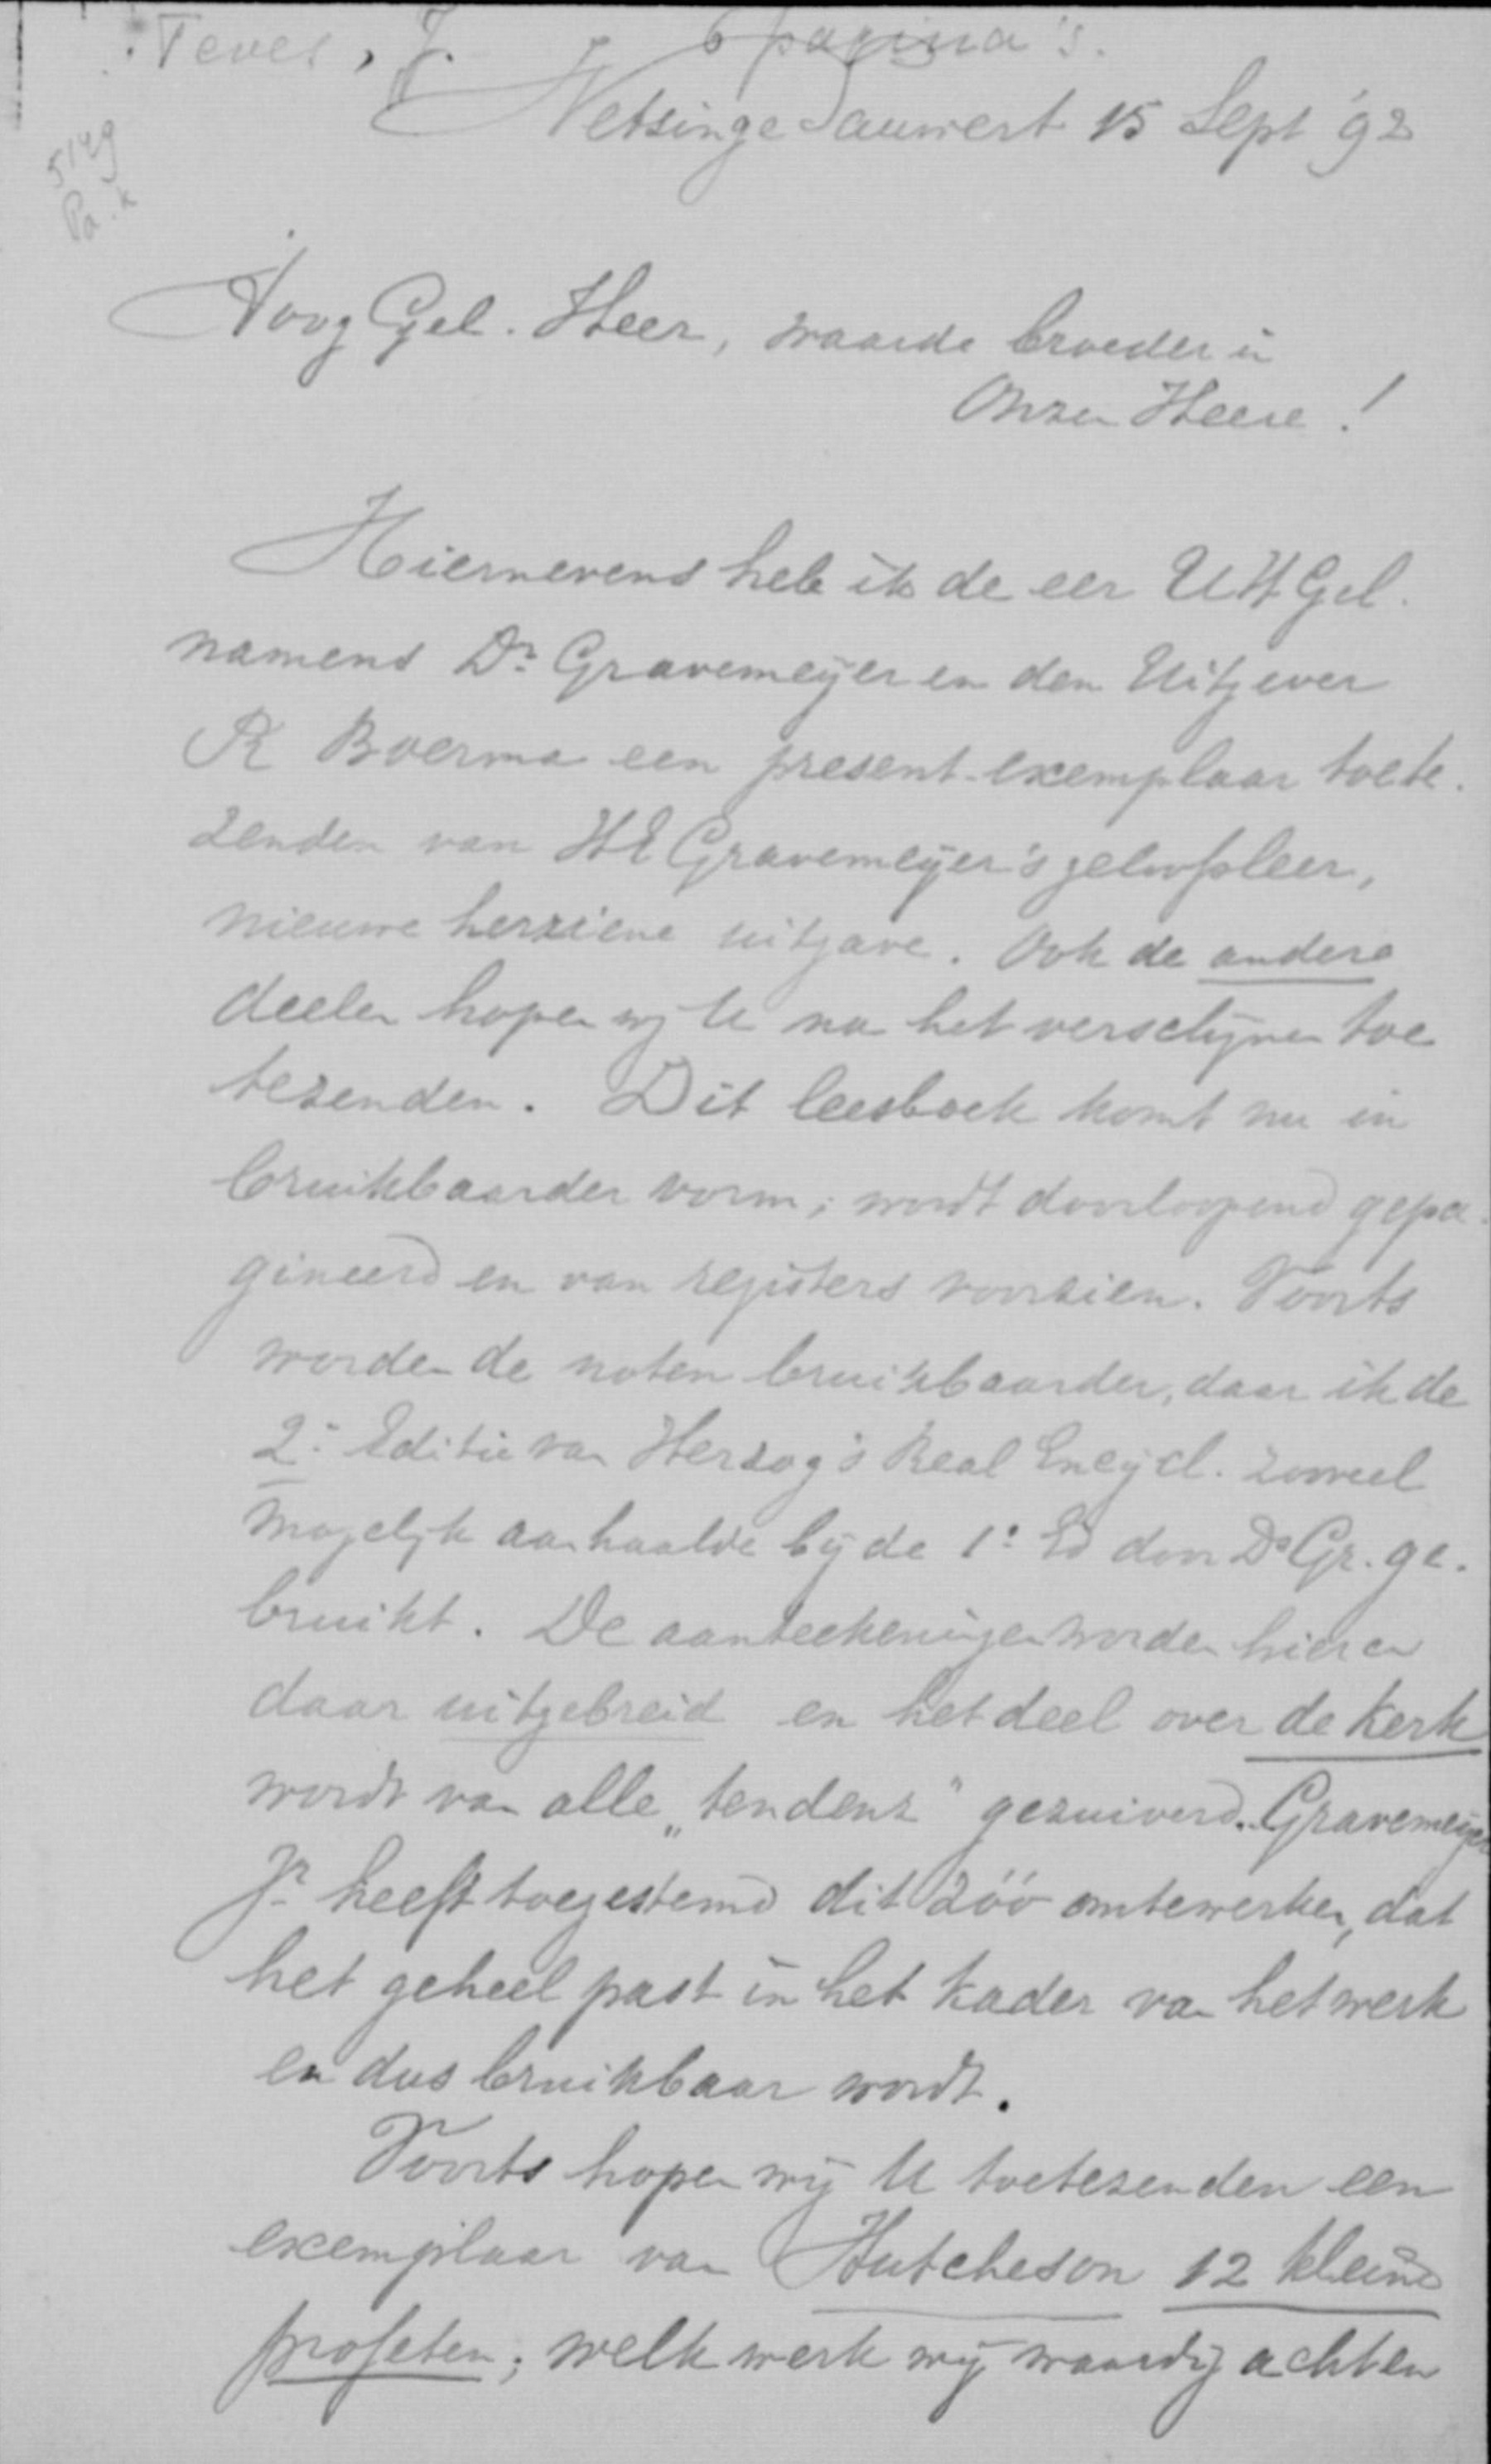 Teves, J. 6 pagina's.
Netsinge Sauwert 15 Sept '92
5149
Pa. K
Hoog Gel. Heer, waarde broeder in
Onzen Heere!
Hiernevens heb ik de eer UH Gel.
namens Dr. Gravemeijer en den Uitgever
R Boerma een present-exemplaar toete.
zenden van HE Gravemeijer's geloofsleer,
nieuwe herziene uitgave. Ook de andere
deelen hopen wij U na het verschijnen toe
tezenden. Dit leesboek komt nu in
bruikbaarder vorm; wordt doorloopend gepa.
gineerd en van registers voorzien. Voorts
worden de noten bruikbaarder, daar ik de
2e Editie van Herzog's Real Encycl. zooveel
mogelijk aanhaalde bij de 1e Ed door Ds Gr. ge.
bruikt. De aanteekeningen worden hier en
daar uitgebreid en het deel over de Kerk
wordt van alle „tendenz" gezuiverd. Gravemeijer
Jr heeft toegestemd dit zóó omtewerken, dat
het geheel past in het kader van het werk
en dus bruikbaar wordt.
Voorts hopen wij U toetezenden een
exemplaar van Hutcheson 12 kleine
profeten; welk werk wij waardig achten